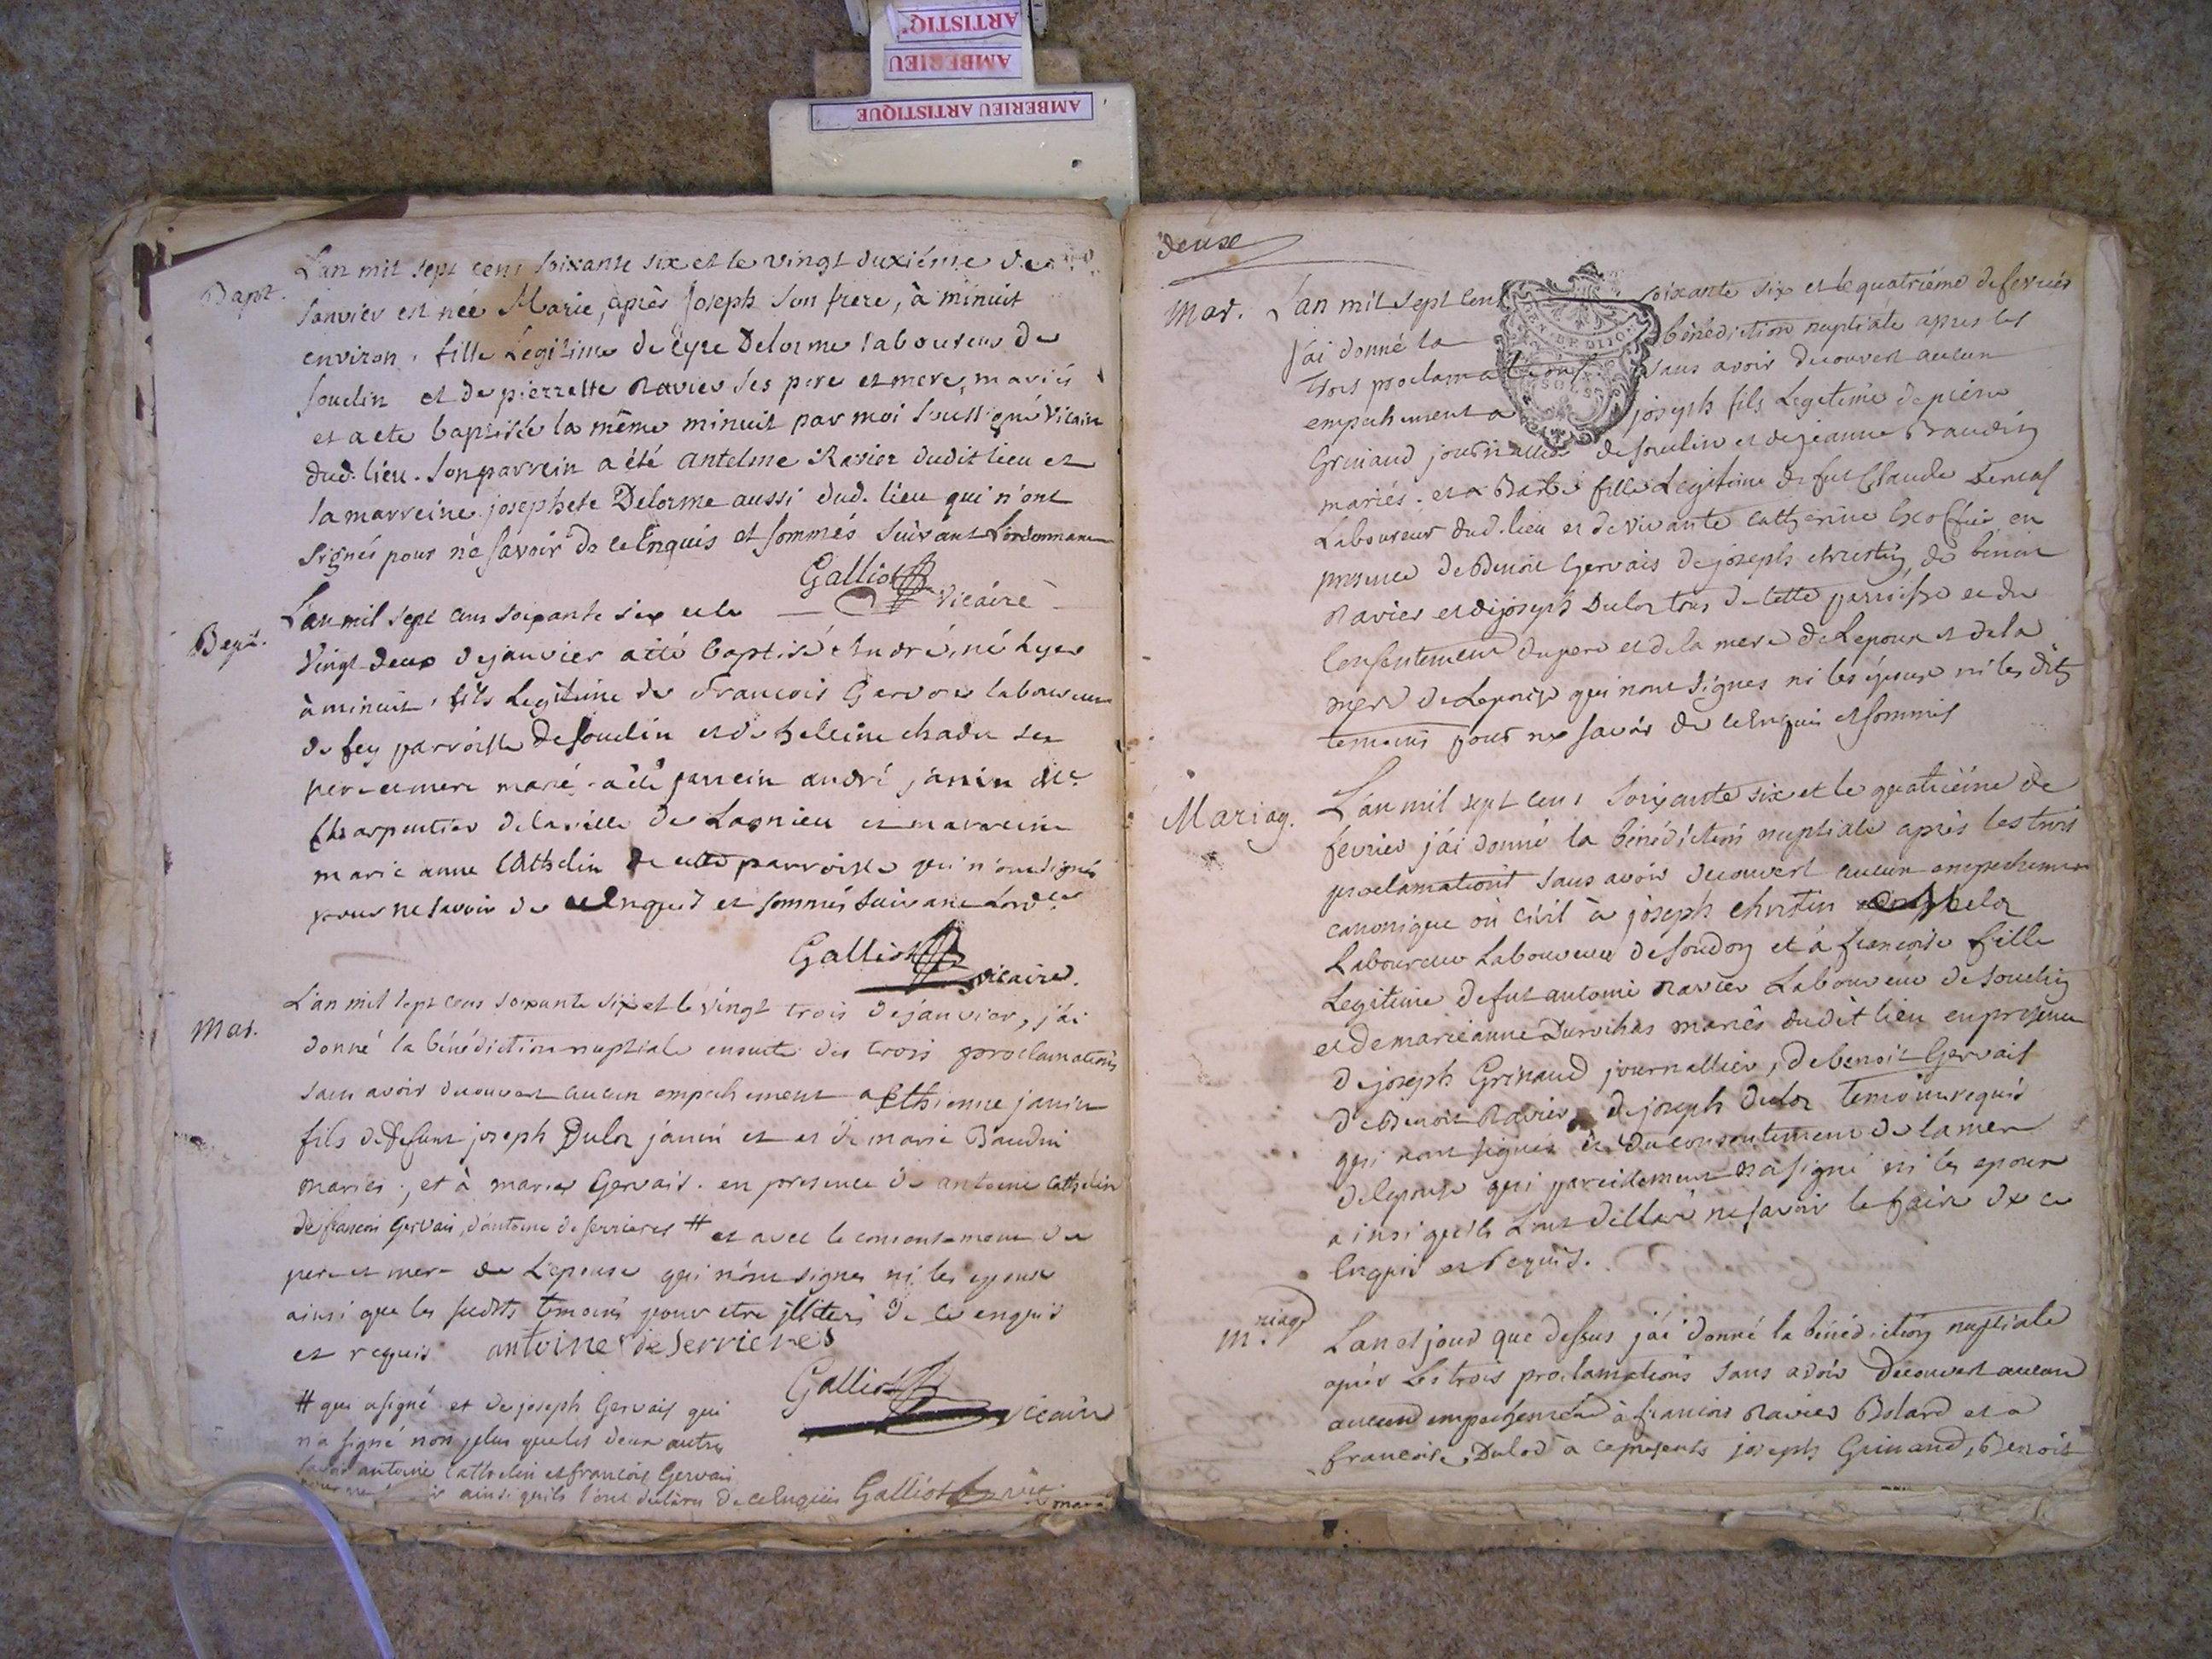 ARTISTIQ
AMBERIEU
AMBERIEU ARTISTIQUE
Bapt.
L'an mil sept cens soixante six et le vingt duxiéme de
Janvier est née Marie, après Joseph son frere, à minuit
environ. fille Legitime de Delorme laboureur de
Souclin et de pierrette Ravier ses pere et mere, mariés
et a ete baptisée la même minuit par moi soussigné Vicaire
dud. lieu. Son parrein a été antelme Ravier dudit lieu et
la marreine josephete Delorme aussi dud. lieu qui n'ont
signés pour ne savoir de ce Enquis et sommés suivant L'ordonnance
Galliost
Vicaire
Bapt.
L'an mil sept cens soixante six et le
Vingt deux de janvier a été baptisé André, né hyer
à minuit, fils Legitime de Francois Gervais laboureur
de fey parroisse de Souclin et de heleine chadu ses
pere et mere marié. a été parrein andré janin Me
Charpentier de la ville de Lagnieu et marreine
marie anne Cathelin de cette parroisse qui n'ont signés
pour ne savoir de ce Enquis et sommés suivant Lord.ce
Galliost
vicaire.
Mar.
L'an mil sept cens soixante six et le vingt trois de janvier, j'ai
donné la bénédiction nuptiale ensuite des trois proclamations
sans avoir decouvert aucun empechement a Ethienne janin
fils de defunt joseph Dulor janin et et de marie Baudin
mariés, et à marie Gervais. en presence de antoine Cathelin
de francois Gervais, d'antoine de serrieres # et avec le consentement de
pere et mere de L'epouse qui n'ont signes ni les epoux
ainsi que les susdits temoins pour etre illiterés de ce enquis
et requis antoine de serrieres
Galliost
vicaire
# qui a signé et de joseph Gervais qui
n'a signé non plus que les deux autres
savoir antoine Cathelin et francois Gervais
ainsi qu'ils l'ont déclaré de ce Enquis Galliost vic
deuxe
Mar.
L'an mil sept cens soixante six et le quatriéme de fevrier
J'ai donné la bénédiction nuptiale apres les
trois proclamations sans avoir decouvert aucun
empechement a joseph fils Legitime de pierre
Grinand journallier de souclin et de jeanne Baudin
mariés. et a Barbe fille Legitime de fut Claude
Laboureur dud. lieu et de vivante Catherine en
presence de Benoit Gervais de joseph christin, de benoit
Ravier et de joseph Dulor tous de cette parroisse et du
Consentement du pere et de la mere de Lepoux et de la
mere de Lepouse qui n'ont signes ni les époux ni les dits
temoins pour ne savoir de ce Enquis et sommés
Mariag.
L'an mil sept cens soixante six et le quatriéme de
fevrier j'ai donné la bénédiction nuptiale après les trois
proclamations sans avoir decouvert aucun empechement
canonique ou civil à joseph christin
Laboureur Laboureur de soudon et à francoise fille
Legitime de fut antoine Ravier Laboureur de souclin
et de marie anne mariés du dit lieu en presence
de joseph Grinand journallier, de benoit Gervais
de Benoit Ravier, de joseph Dulor temoins requis
qui n'ont signes et du consentement de la mere
de lepouse qui pareillement n'a signé ni les epoux
ainsi qu'ils l'ont dellaré ne savoir le faire de ce
Enquis et requis.
M.riage
L'an et jour que dessus j'ai donné la bénédiction nuptiale
après Les trois proclamations sans avoir decouvert aucun
aucun empechement à francois Ravier Bolard et a
francoise Dulor a ce presents joseph Grinand, Benoit